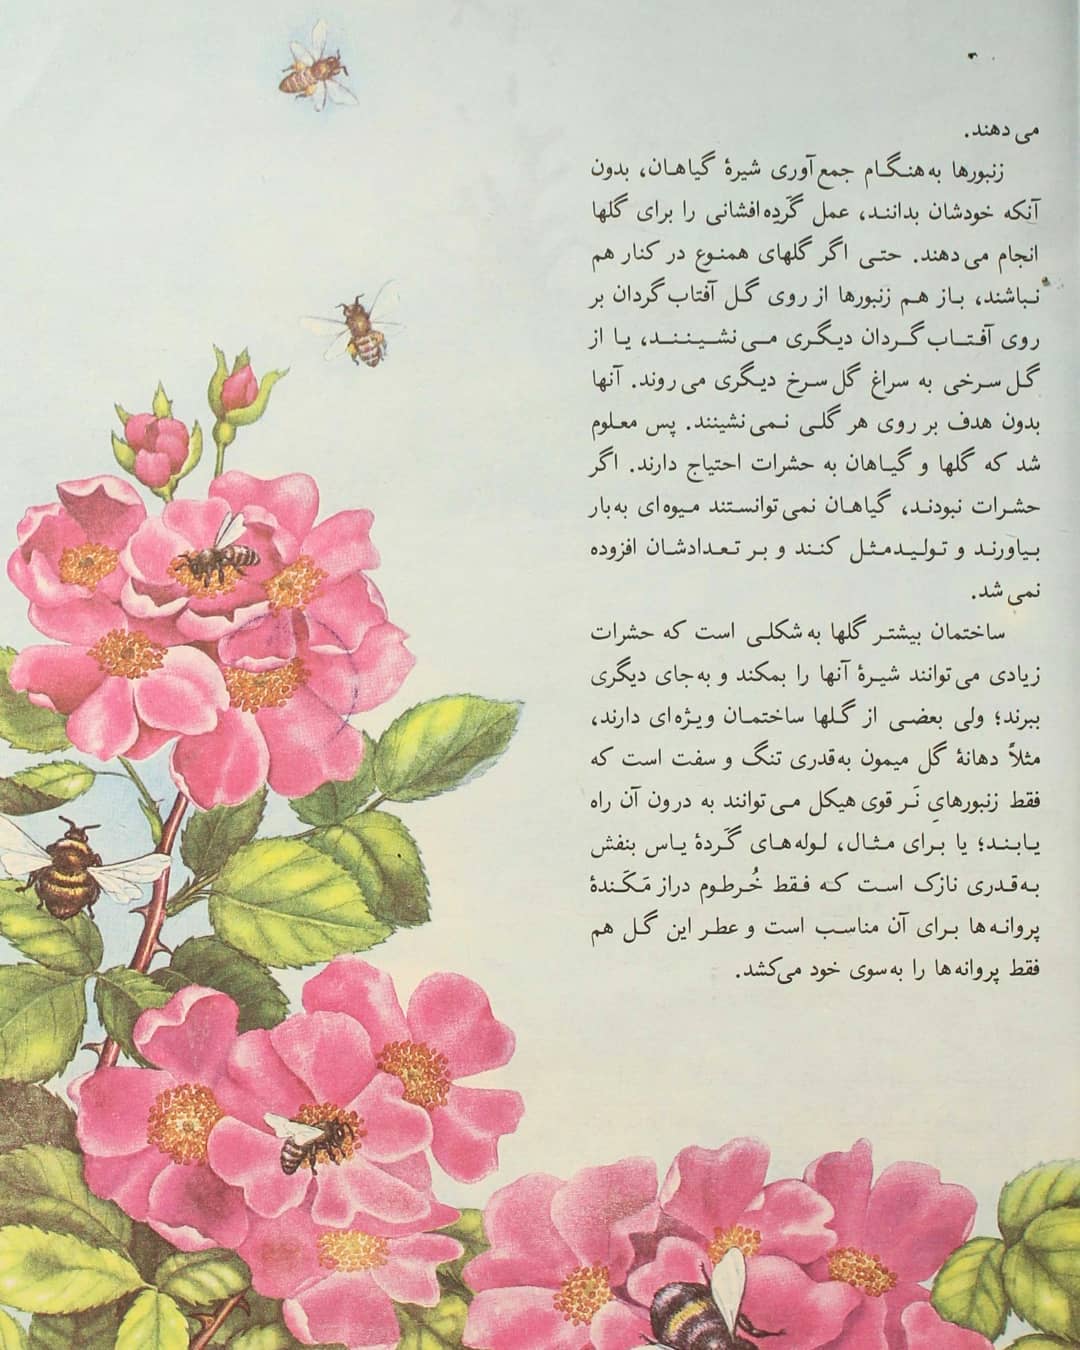 می‌دهند.
زنبورها به‌هنگام جمع‌آوری شیرهٔ گیاهان، بدون
آنکه خودشان بدانند، عمل گَردِه‌افشانی را برای گلها
انجام می‌دهند. حتی اگر گلهای همنوع در کنار هم
نباشند، باز هم زنبورها از روی گل آفتاب‌گردان بر
روی آفتاب‌گردان دیگری می‌نشینند، یا از
گل‌سرخی به سراغ گل‌سرخ دیگری می‌روند. آنها
بدون هدف بر روی هر گلی نمی‌نشینند. پس معلوم
شد که گلها و گیاهان به حشرات احتیاج دارند. اگر
حشرات نبودند، گیاهان نمی‌توانستند میوه‌ای به‌بار
بیاورند و تولیدمثل کنند و بر تعدادشان افزوده
نمی‌شد.
ساختمان بیشتر گلها به‌شکلی است که حشرات
زیادی می‌توانند شیرهٔ آنها را بمکند و به‌جای دیگری
ببرند؛ ولی بعضی از گلها ساختمان ویژه‌ای دارند،
مثلاً دهانهٔ گل میمون به‌قدری تنگ و سفت است که
فقط زنبورهایِ نَر قوی‌هیکل می‌توانند به درون آن راه
یابند؛ یا برای مثال، لوله‌های گَردهٔ یاس بنفش
به‌قدری نازک است که فقط خُرطوم دراز مَکَندهٔ
پروانه‌ها برای آن مناسب است و عطر این گل هم
فقط پروانه‌ها را به‌سوی خود می‌کشد.